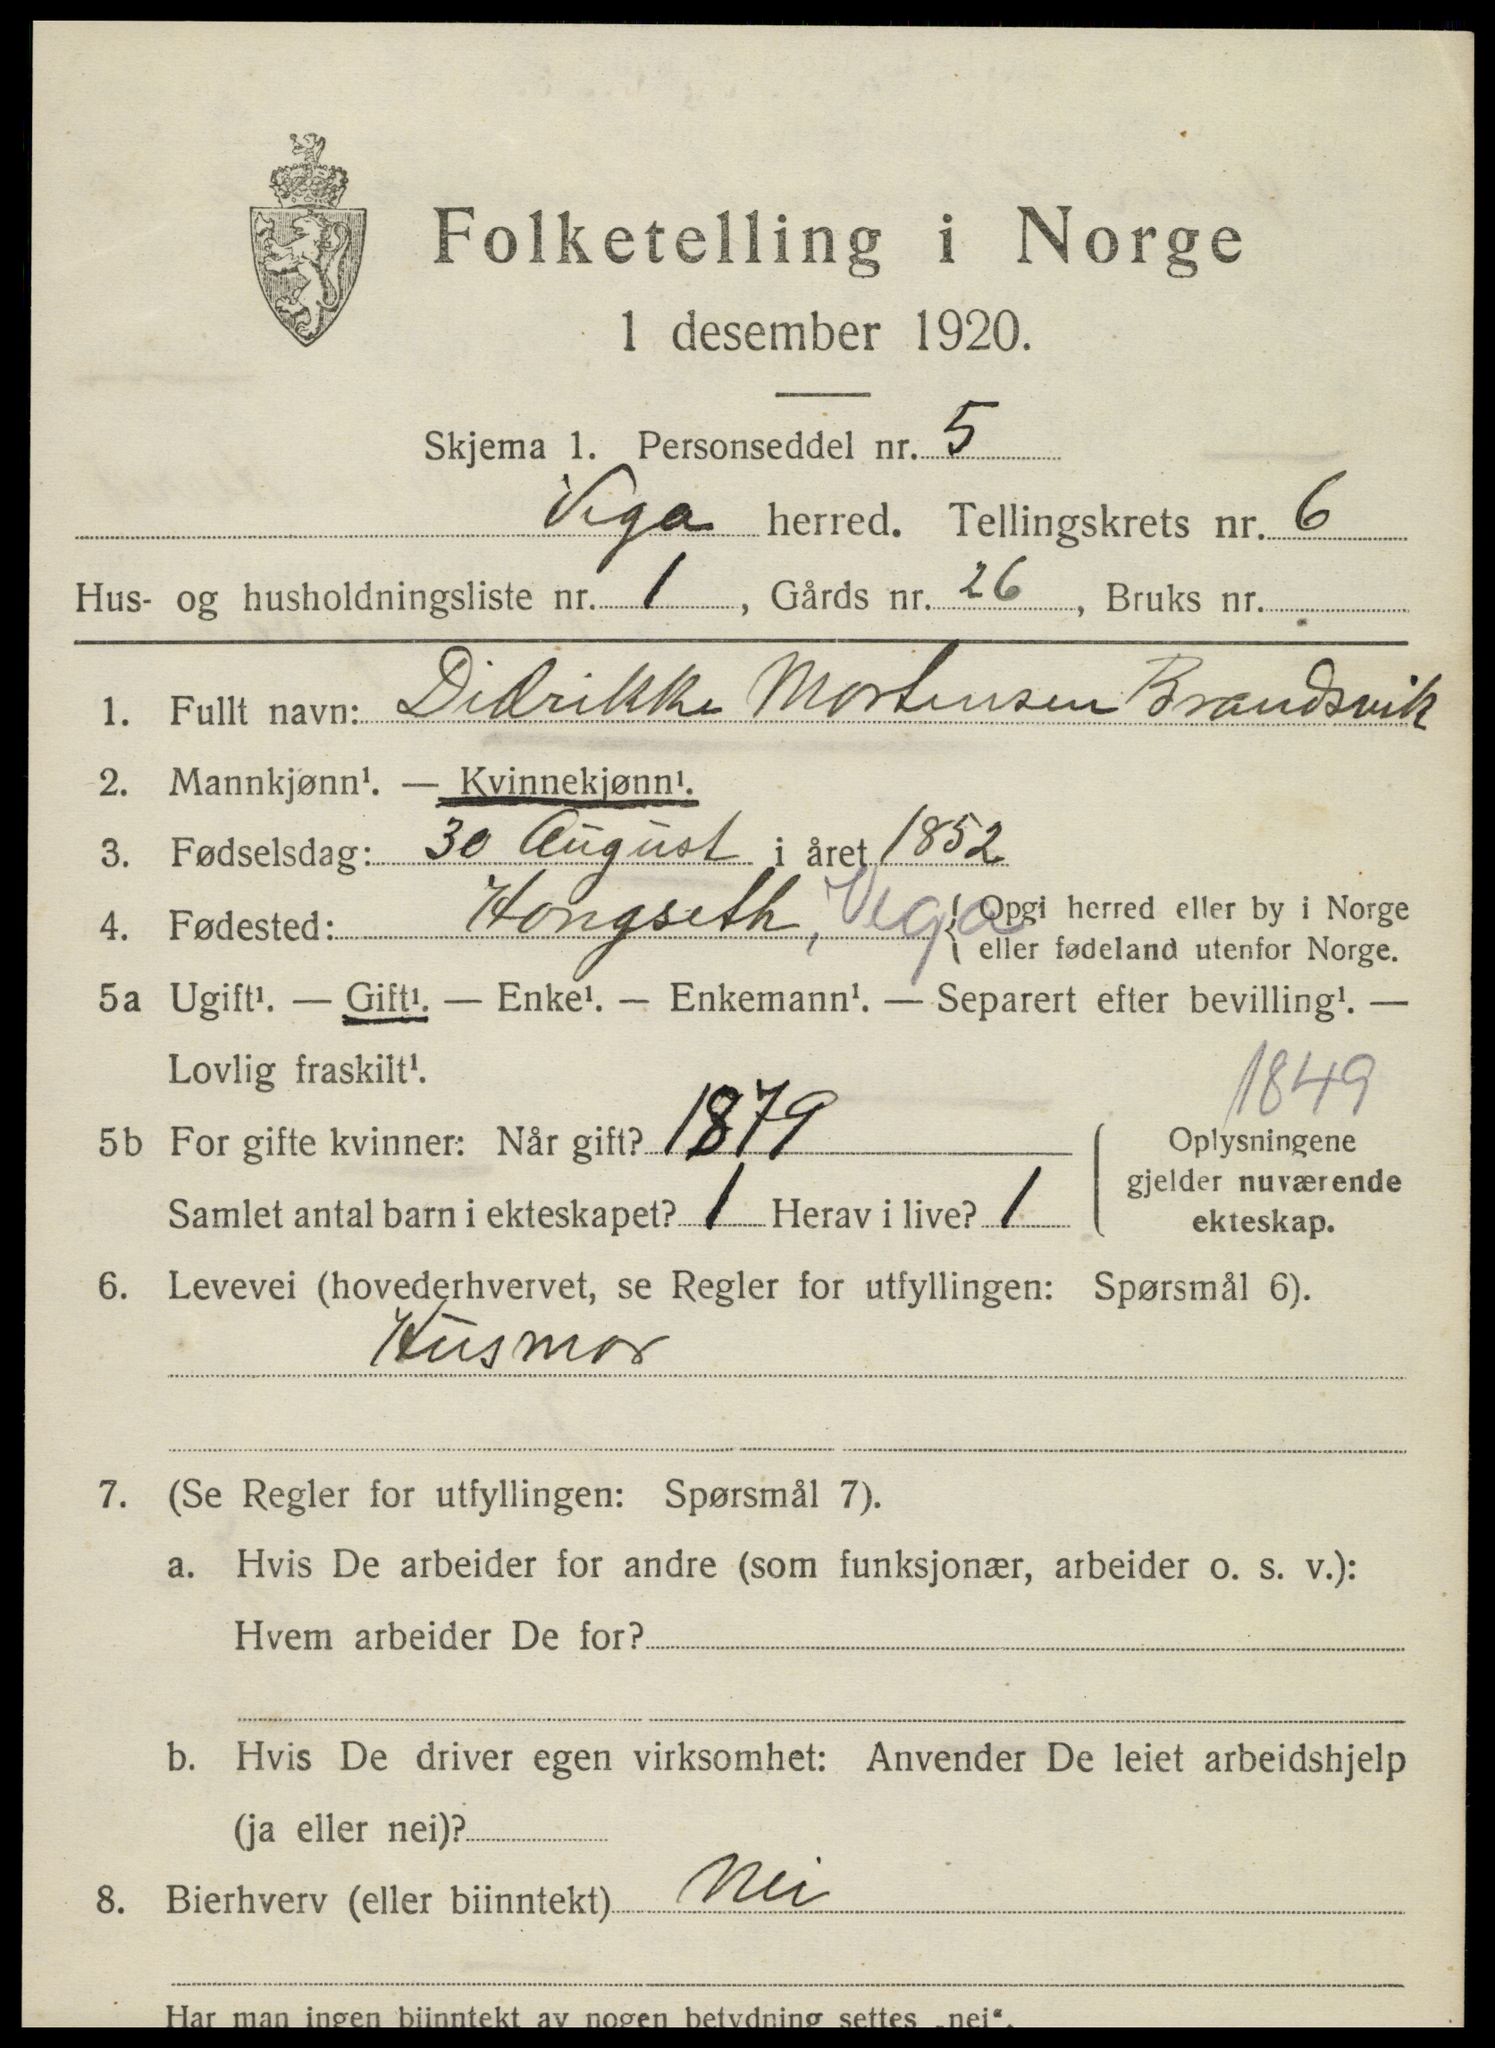 Folketelling i Norge
1 desember 1920.
Skjema 1. Personseddel nr. 5
Vega herred. Tellingskrets nr. 6
Hus- og husholdningsliste nr. 1, Gårds nr. 26, Bruks nr.
1. Fullt navn: Didrikke Mortensen Brandsvik
2. Mannkjønn¹. — Kvinnekjønn¹.
3. Fødselsdag: 30 August i året 1852
4. Fødested: Hongseth, Vega { Opgi herred eller by i Norge
eller fødeland utenfor Norge.
5a Ugift¹. — Gift¹. — Enke¹. — Enkemann¹. — Separert efter bevilling¹. —
Lovlig fraskilt¹.
1849
5b For gifte kvinner: Når gift? 1879
Samlet antal barn i ekteskapet? 1 Herav i live? 1
Oplysningene
gjelder nuværende
ekteskap.
6. Levevei (hovederhvervet, se Regler for utfyllingen: Spørsmål 6).
Husmor
7. (Se Regler for utfyllingen: Spørsmål 7).
a. Hvis De arbeider for andre (som funksjonær, arbeider o. s. v.):
Hvem arbeider De for?
b. Hvis De driver egen virksomhet: Anvender De leiet arbeidshjelp
(ja eller nei)?
8. Bierhverv (eller biinntekt) Nei
Har man ingen biinntekt av nogen betydning settes „nei“.